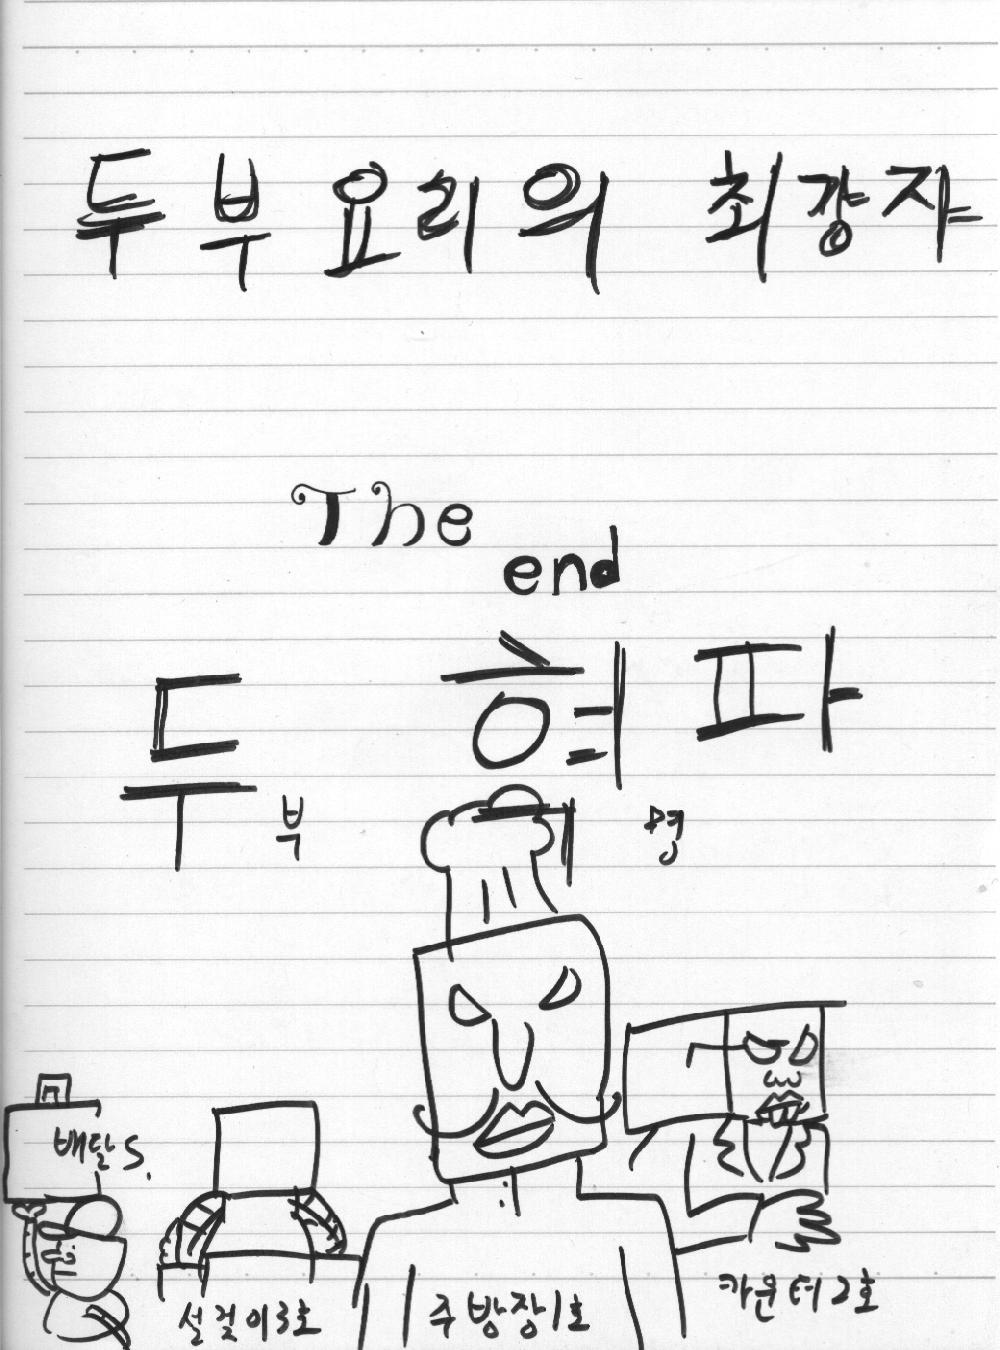 두부요리의 최강자
The
end
두부 혁파
부 명
배달 S.
설겆이3호 주방장1호 카운터2호